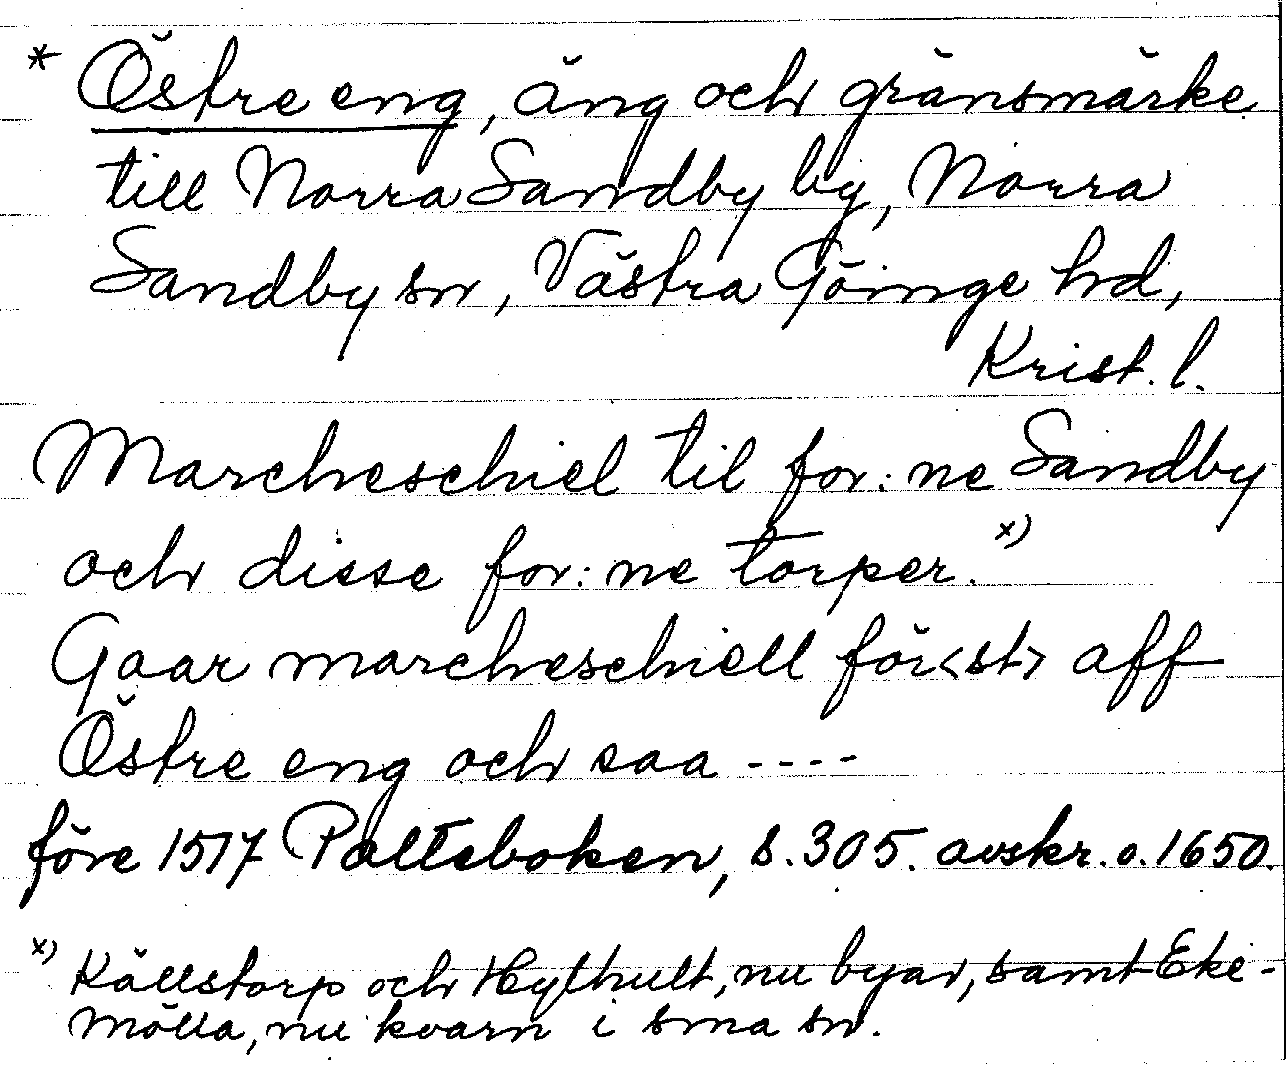 * Östre eng, äng och gränsmärke
till Norra Sandby by, Norra
Sandby sn, Västra Göinge hd,
Krist. l.
Marcheschiel til for: ne Sandby
och disse for: ne torper. x)
Gaar marcheschiell för<st> aff
Östre eng och saa ----
före 1517 Palteboken, s. 305. avskr. o. 1650.
x) Källstorp och Hylthult, nu byar, samt Eke-
mölla, nu kvarn i sma sn.